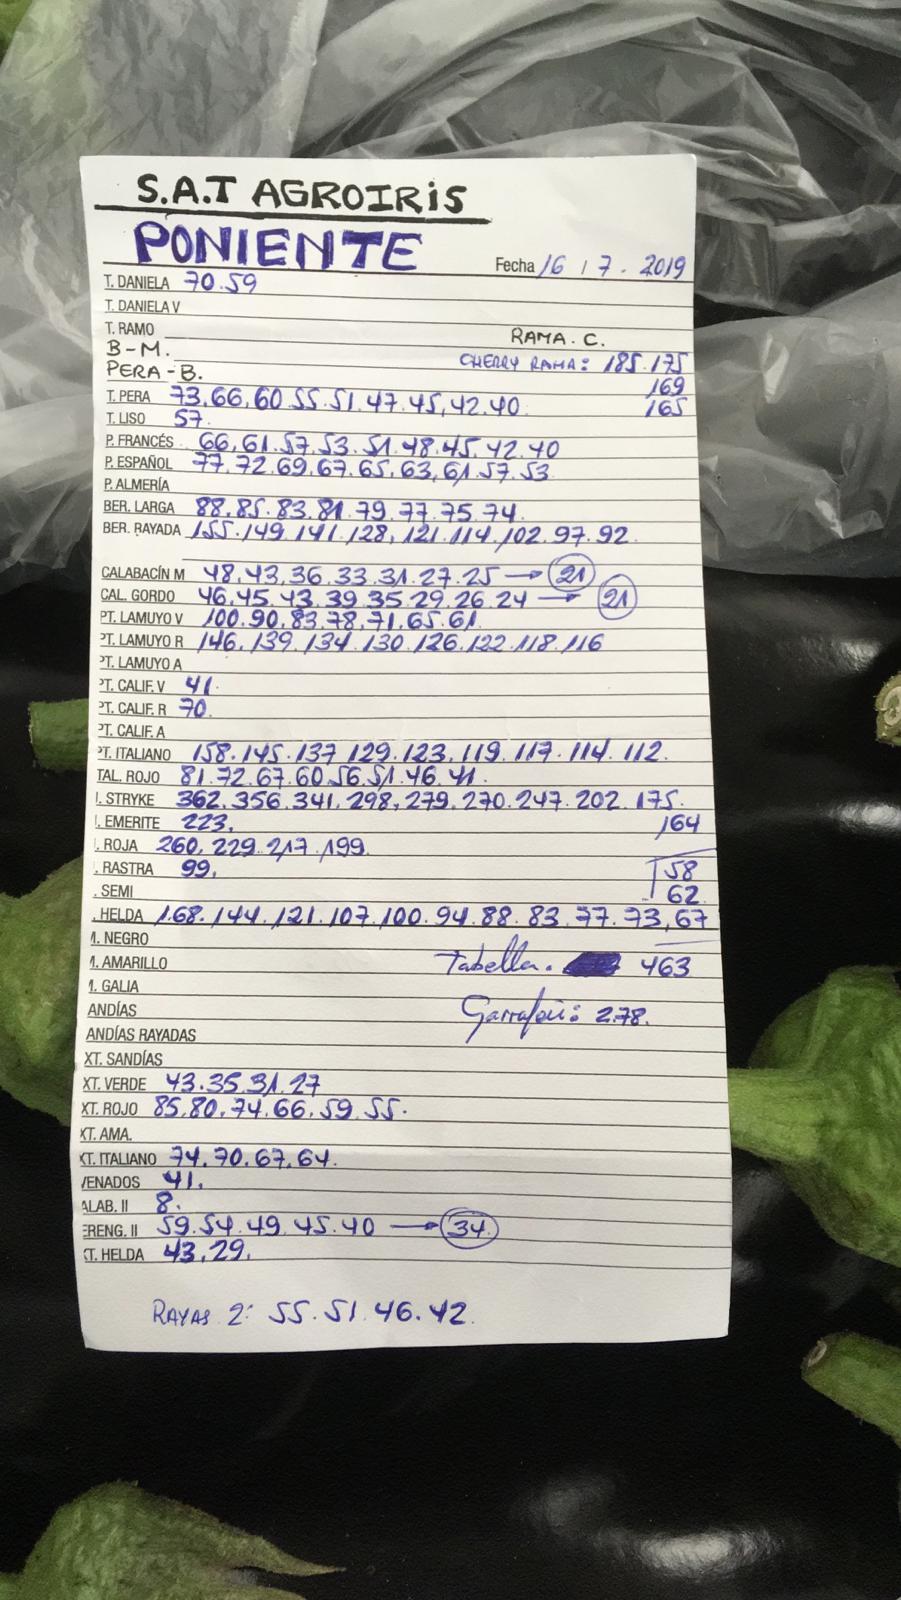 S.A.T AGROIRiS
PONIENTE
Fecha 16 / 7 . 2019
T. DANIELA 70.59
T. DANIELA V
T. RAMO
RAMA. C.
B-M.
CHERRY RAMA: 185.175
PERA-B.
169
T. PERA 73,66,60 55.51.47.45,42.40
165
T. LISO 57.
P. FRANCÉS 66,61.57.53.51.48.45.42.40
P. ESPAÑOL 77.72.69.67.65.63,61.57.53
P. ALMERÍA
BER. LARGA 88.85.83.81.79.77.75.74.
BER. RAYADA 155.149.141.128,121.114.102.97.92.
CALABACÍN M 48,43,36.33.31.27.25 → 21
CAL. GORDO 46,45.43.39.35.29.26.24 → 21
PT. LAMUYO V 100.90.83.78,71.65.61.
PT. LAMUYO R 146.139.134.130.126.122.118.116
PT. LAMUYO A
PT. CALIF. V 41.
PT. CALIF. R 70.
PT. CALIF. A
PT. ITALIANO 158.145.137 129.123.119.117.114.112.
TAL. ROJO 81.72.67.60.56.51.46.41.
. STRYKE 362.356.341.298,279.270.247.202.175.
. EMERITE 223.
164
. ROJA 260,229.217.199.
. RASTRA 99.
58
. SEMI
62
. HELDA 168.144.121.107.100.94.88.83.77.73,67
. NEGRO
. AMARILLO
Tabella. 463
. GALIA
ANDÍAS
Garrafón: 2.78.
ANDÍAS RAYADAS
XT. SANDÍAS
XT. VERDE 43.35.31.27
XT. ROJO 85.80.74.66.59.55.
XT. AMA.
XT. ITALIANO 74.70.67.64.
VENADOS 41.
ALAB. II 8.
ERENG. II 59.54.49.45.40 → 34
XT. HELDA 43.29.
RAYAS 2: 55.51.46.42.